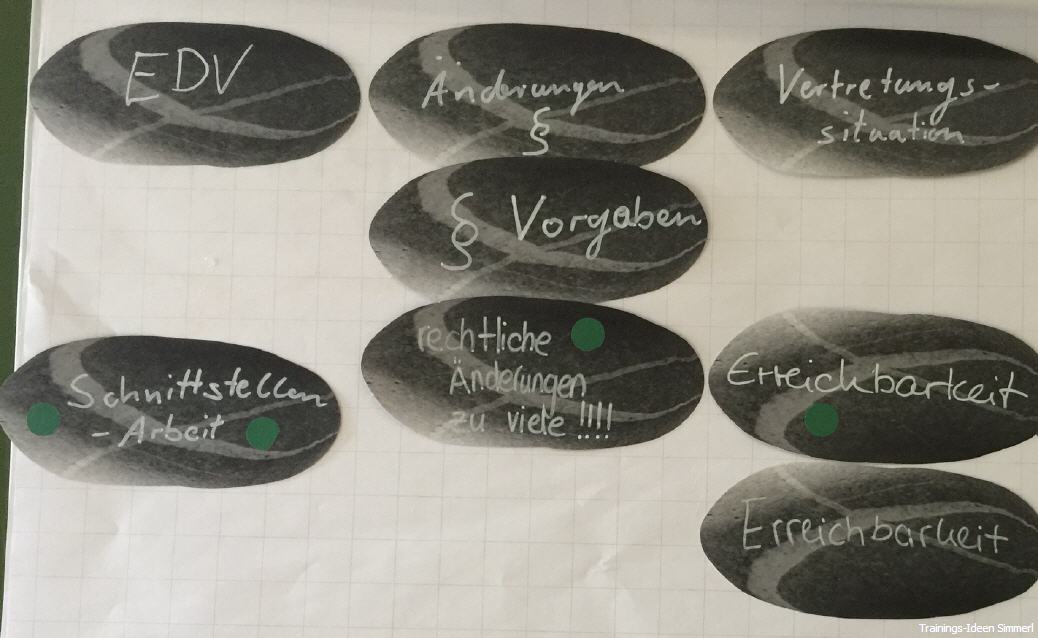 EDV
Änderungen
§
Vertretungs-
situation
§ Vorgaben
Schnittstellen
-Arbeit
rechtliche
Änderungen
zu viele !!!!
Erreichbarkeit
Erreichbarkeit
Trainings-Ideen Simmerl